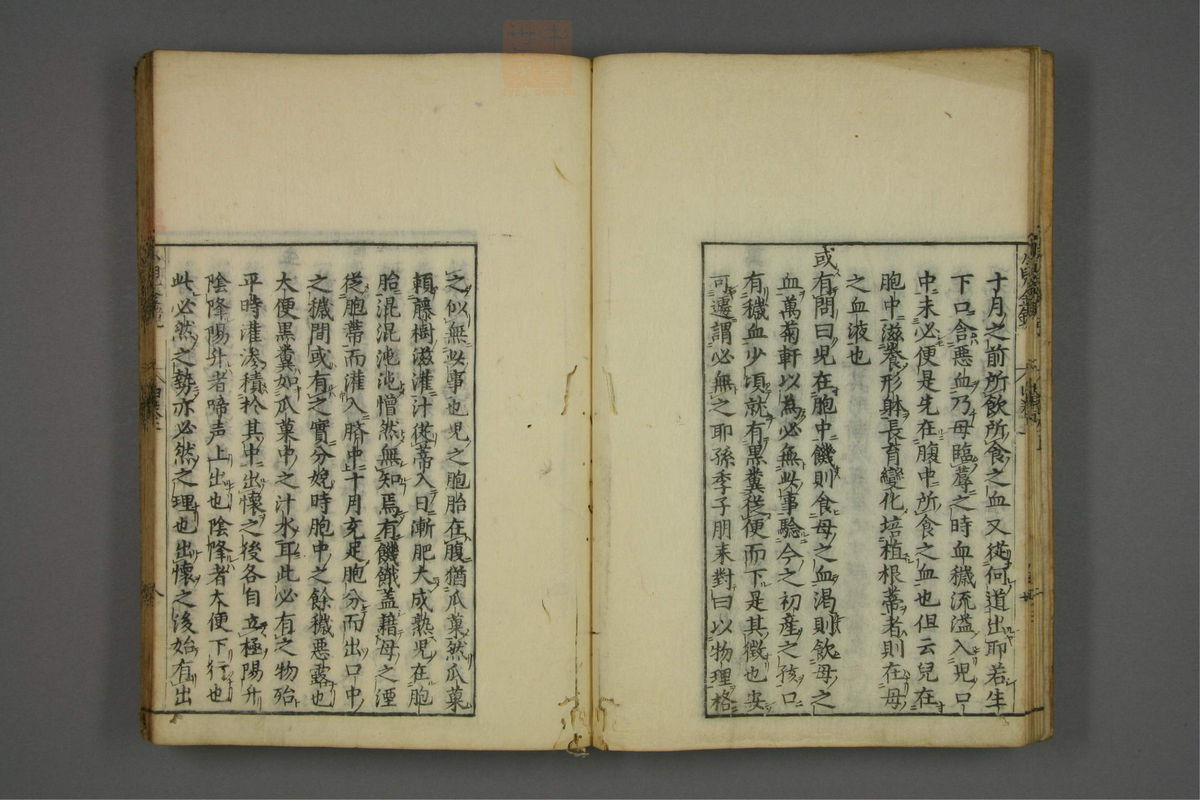 十月之前所飲所食之血又從何道出耶若生
下口含惡血乃母臨蓐之時血穢流溢入児口
中未必便是先在腹中所食之血也但云兒在
胞中滋養形躰長育變化培植根蔕者則在母
之血液也
或有問曰児在胞中饑則食母之血渴則飲母之
血萬菊軒以為必無此事驗今之初産之孩口
有穢血少頃就有黒糞從便而下是其徴也安
可遷謂必無之耶孫季子朋来對曰以物理格
之似無此事也児之胞胎在腹猶瓜菓然瓜菓
頼藤樹滋灌汁從蒂入日漸肥大成熟児在胞
胎混混沌沌憎然無知焉有饑餓蓋藉母之湮
從胞蔕而灌入臍中十月充足胞分而出口中
之穢間或有之實分娩時胞中之餘穢惡露也
大便黒糞如瓜菓中之汁水耳此必有之物殆
平時灌滲積於其中出懐之後各自立極陽升
陰降陽升者啼声上出也陰降者大便下行也
此必然之勢亦必然之理也出懐之後始有出